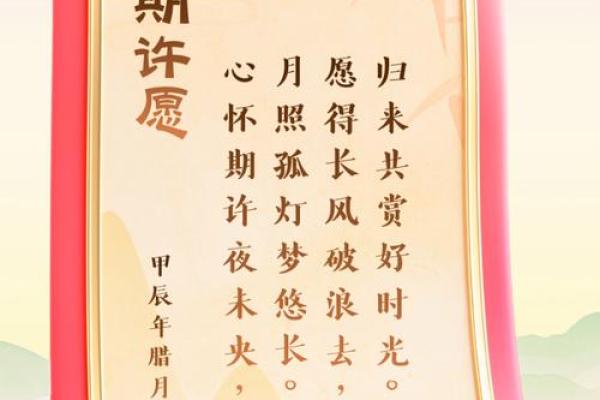 期许愿
心怀期许夜未央，
月照孤灯梦悠长。
愿得长风破浪去，
归来共赏好时光。
甲辰年腊月